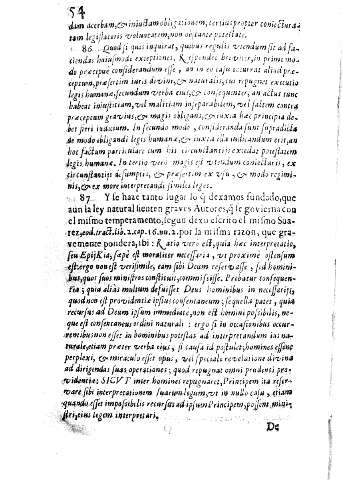 54
dam acerbam, & iniustam obligationem, tertius propter coniectura-
tam legislatoris voluntatem, non obstante potestate.
86. Quod si quis inquirat, quibus regulis utendum sit ad fa-
ciendas huiusmodi exceptiones. Respondeo breviter, in primo mo-
do præcipuè considerandum esse, an in eo casu occurrat aliud præ-
ceptum, præsertim iuris divini, & naturalis, cui repugnet executio
legis humanæ, secundum verba eius, & consequenter, an actus tunc
habeat iniustitiam, vel malitiam inseparabilem, vel saltem contra
præceptum gravius, & magis obligans, & iuxta hæc principia de-
bet fieri iudicium. In secundo modo, consideranda sunt supradicta
de modo obligandi legis humanæ, & iuxta illa iudicandum erit, an
hoc factum particulare cum his circunstantiis excedat potestatem
legis humanæ. In tertio verò magis est utendum coniecturis, ex
circunstantiis assumptis, & præterea ex usu, & modo regimi-
nis, & ex more interpretandi similes leges.
87. Y se haze tanto lugar lo q̃ dexamos fundado, que
aun la ley natural sienten graves Autores, q̃ se govierna con
el mismo temperamento, segun dexò escrito el mismo Sua-
rez, eod. tract. lib. 2. cap. 16. nu. 2. por la misma razon, que gra-
vemente pondera, ibi: Ratio verò est, quia hæc interpretatio,
seu Epijkia, sæpè est moraliter necessaria, ut proximè ostensum
est: ergo non est verisimile, eam sibi Deum reservasse, sed homini-
bus, quos suos ministros constituit, commisisse. Probatur consequen-
tia; quia aliàs multum defuisset Deus hominibus in necessariis,
quod non est providentiæ ipsius consentaneum; sequella patet, quia
recursus ad Deum ipsum immediatè, non est homini possibilis, ne-
que est consentaneus ordini naturali: ergo si in occasionibus occur-
rentibus non esset in hominibus potestas ad interpretandum ius na-
turale, etiam præter verba eius, si causa id postulet, homines essent
perplexi, & miraculo esset opus, vel speciali revelatione divina
ad dirigendas suas operationes; quod repugnat omni prudenti pro-
videntiæ; SICUT inter homines repugnaret, Principem ita reser-
vare sibi interpretationem suarum legum, ut in nullo casu, etiam
quando esset impossibilis recursus ad ipsum Principem, possent mini-
stri, eius legem interpretari.
De